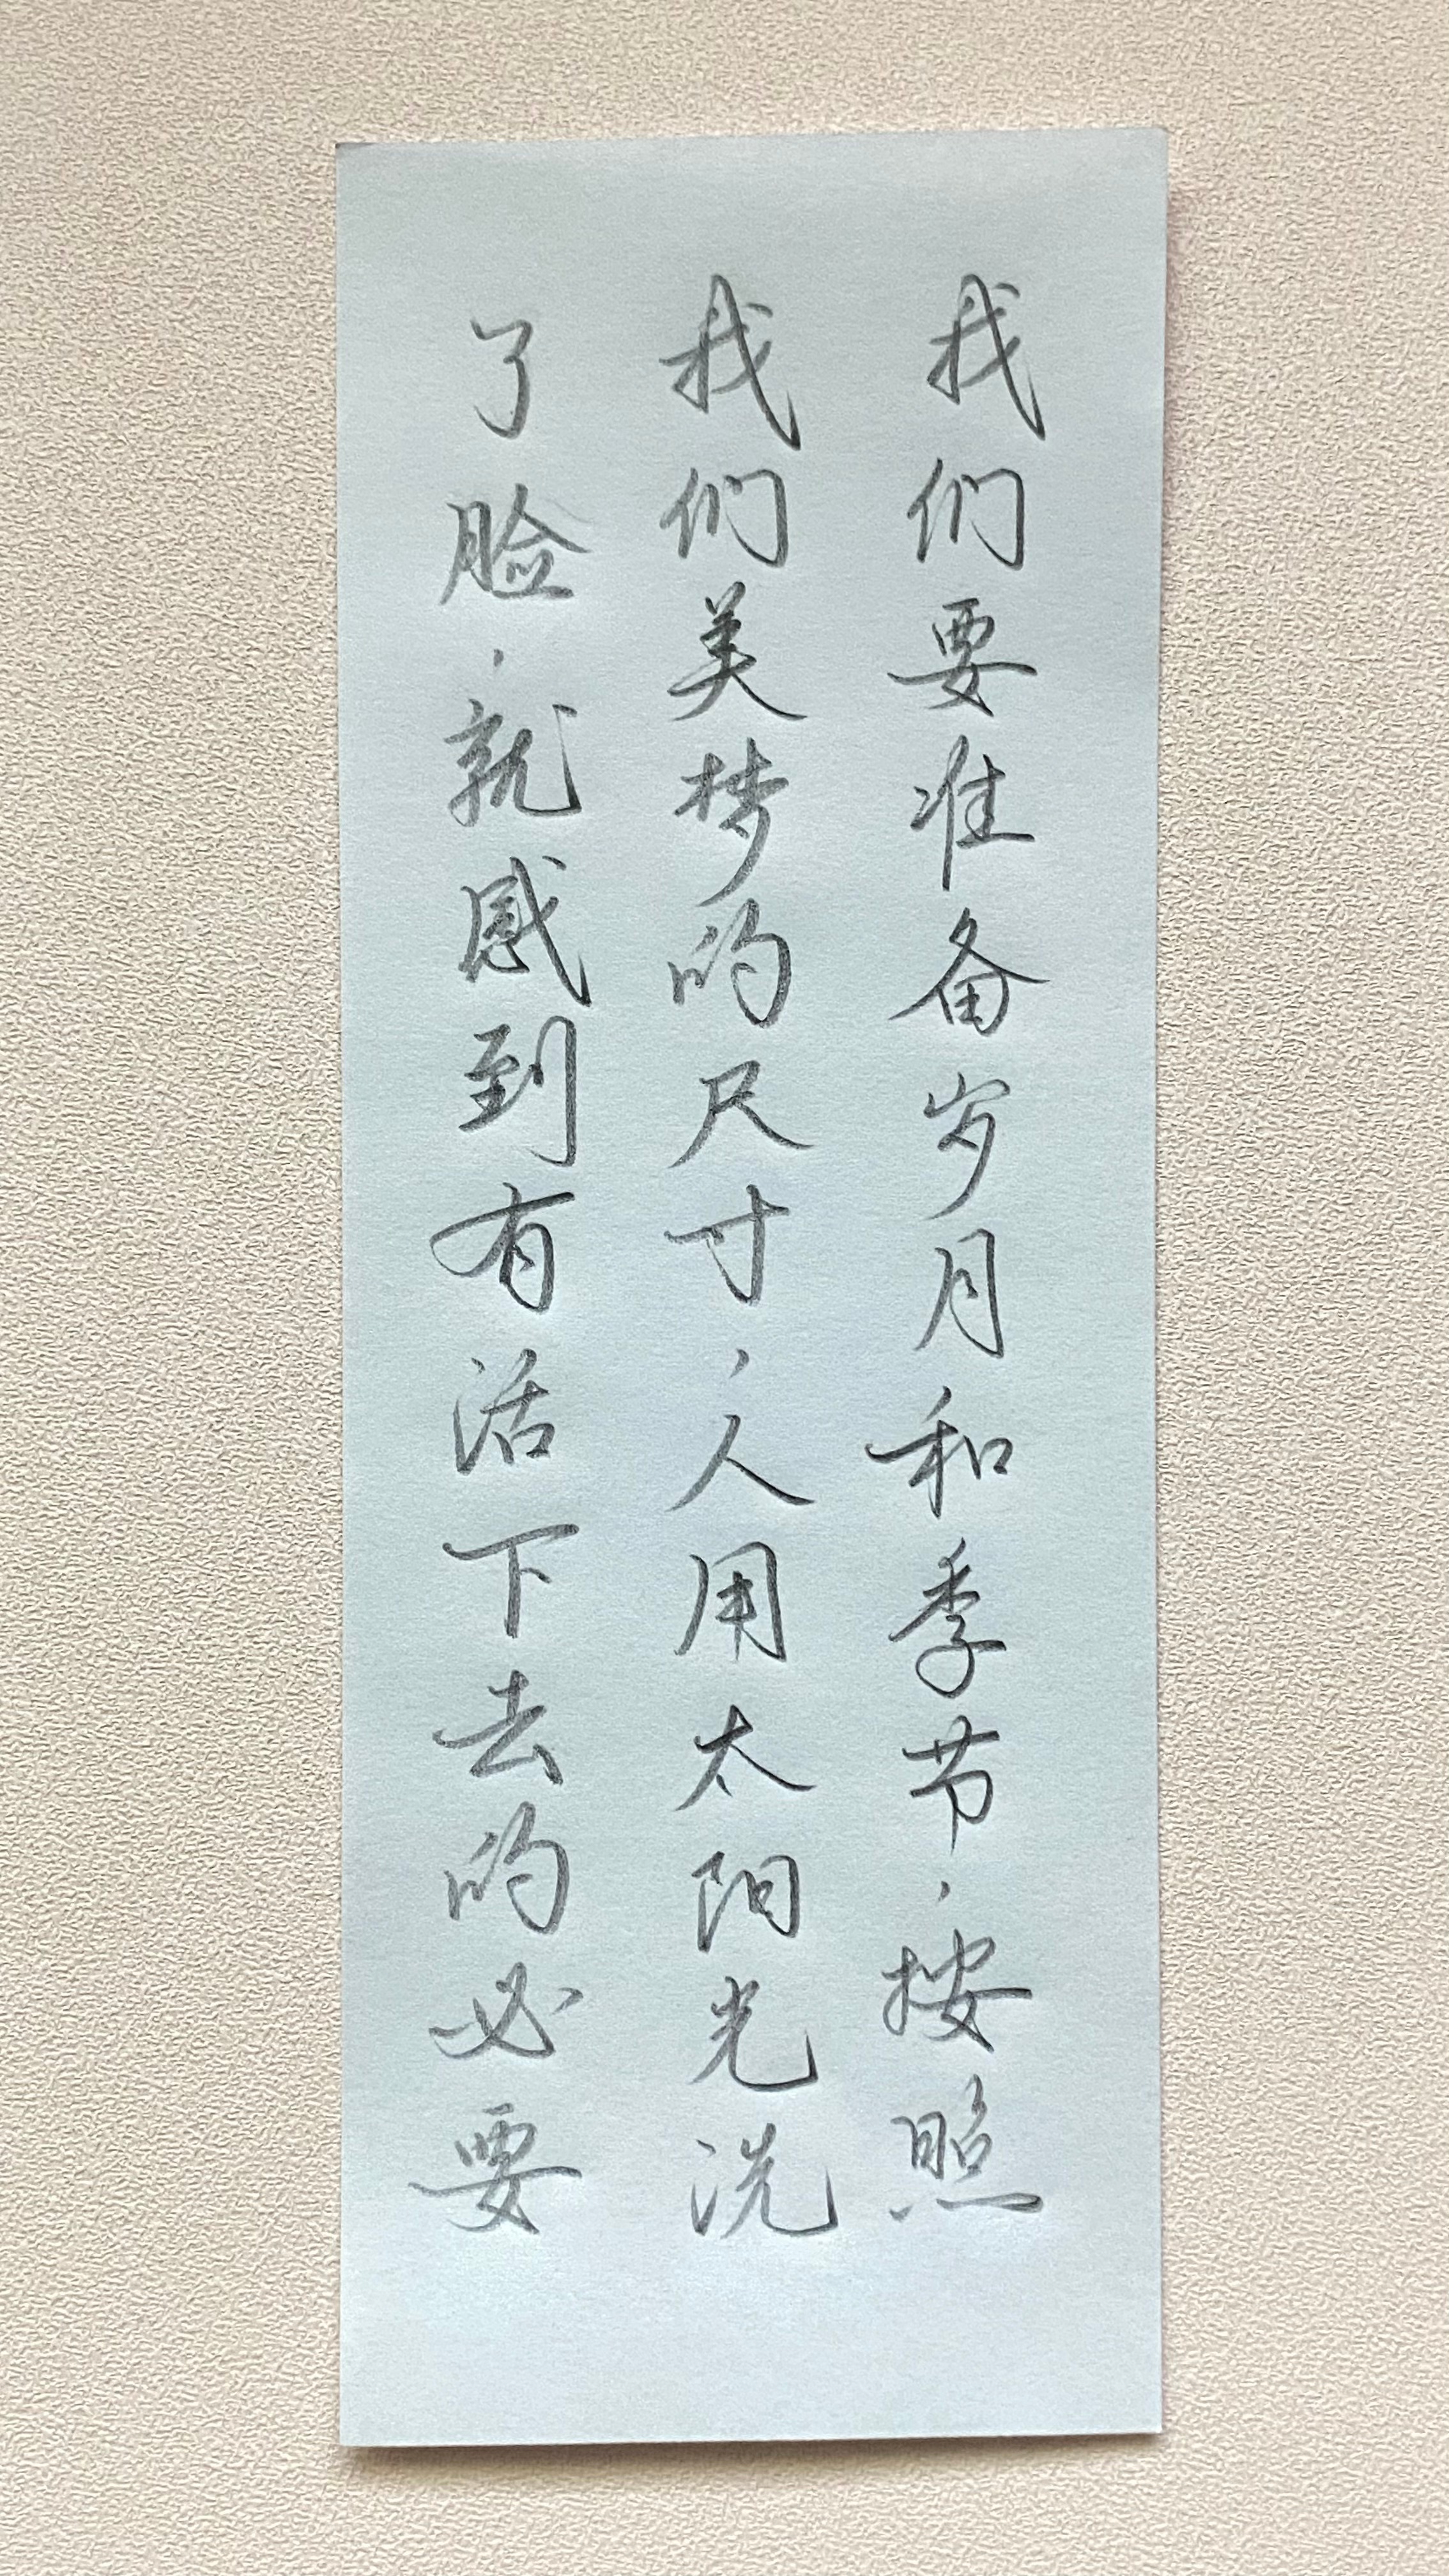 我们要准备岁月和季节，按照
我们美梦的尺寸，人用太阳光洗
了脸，就感到有活下去的必要